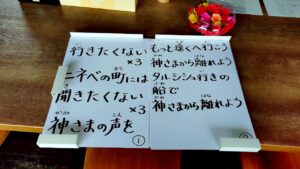 行きたくない
×3
ニネベの町には
まち
聞きたくない
×3
神さまの声を
かみ
こえ
①
もっと遠くへ行こう
神さまから離れよう
かみ
はな
タルシシュ行きの
船で
ふね
神さまから離れよう
かみ
はな
②